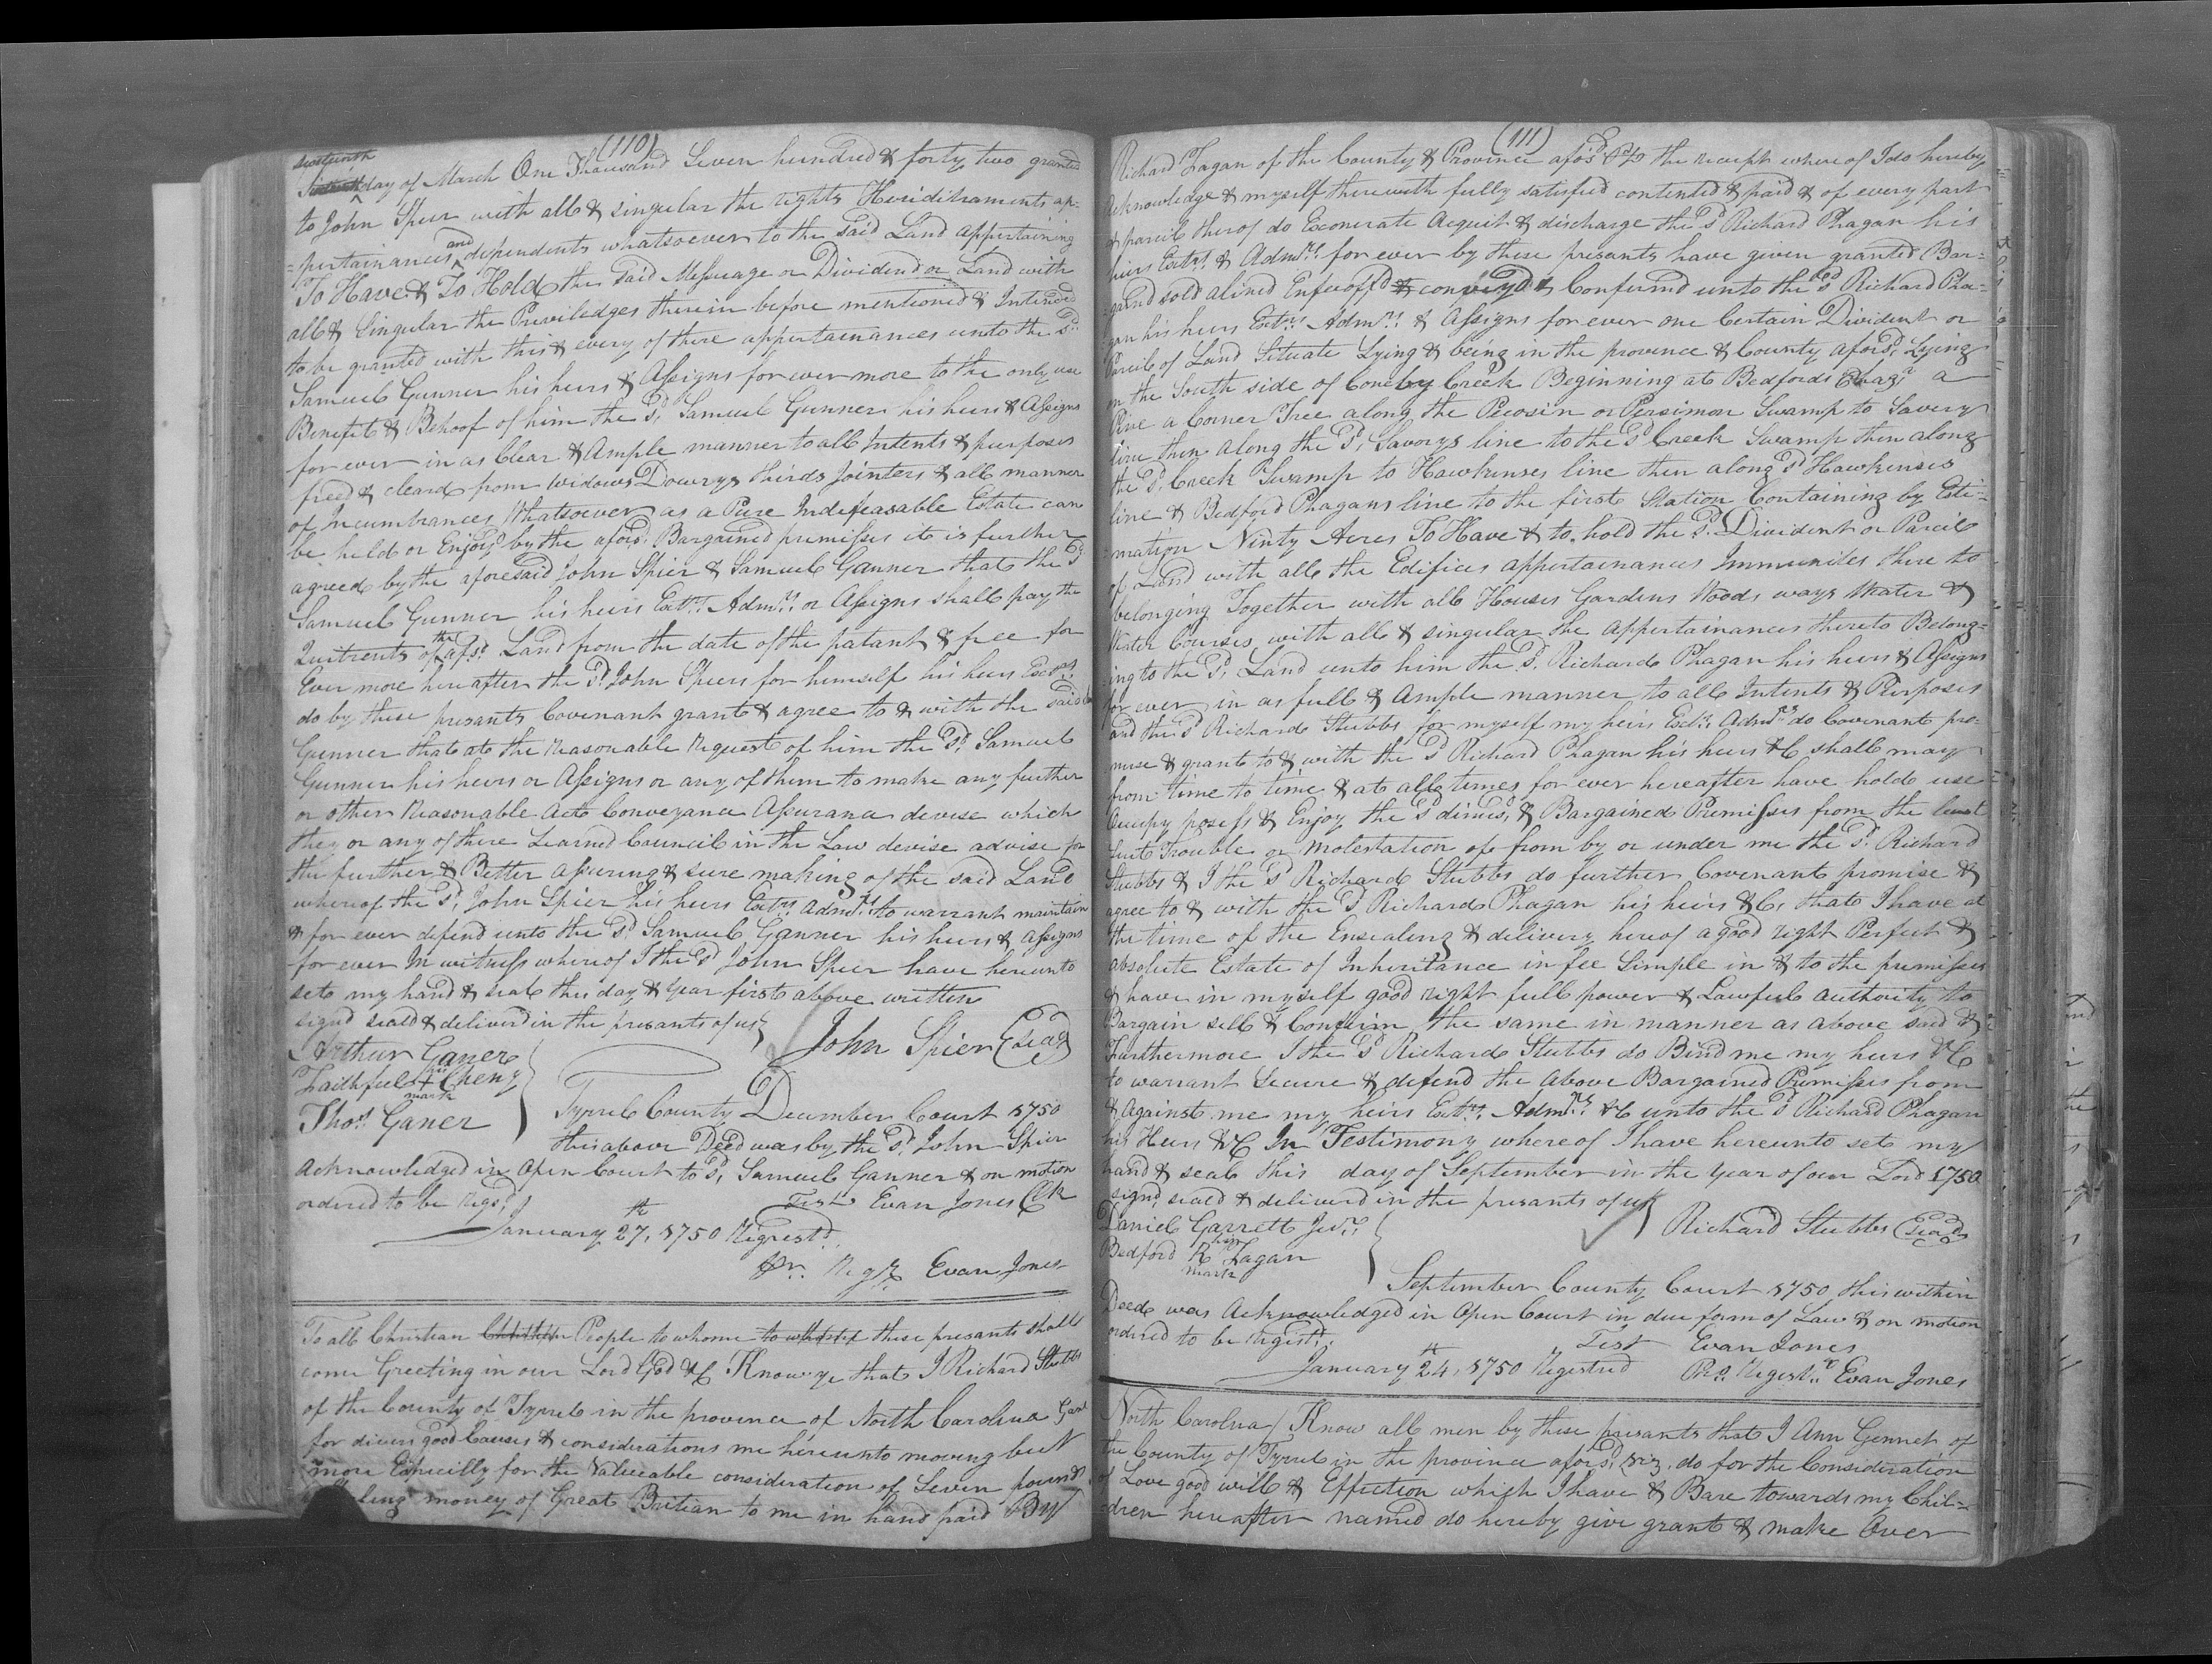 (110)
sixteenth
Sixteenth day of March One Thousand Seven hundred & forty two granted
to John Spier with all & singular the rights Heriditraments ap=
=pertainances and dependents whatsoever to the said Land appertaining
To Have & To Hold the said Messuage or Dividend or Land with
all & Singular the Priviledges therein before mentioned & Intended
to be granted with this & every of there appertainances unto the sd
Samuel Gunner his heirs & Assigns for ever more to the only use
Benefit & Behoof of him the sd Samuel Gunner his heirs & Assigns
for ever in as Clear & Ample manner to all Intents & purposes
freed & cleard from widows Dowrys thirds Jointers & all manner
of Incumbrances Whatsoever as a Pure Indefeasable Estate can
be held or Enjoyd by the aforsd Bargained premisses it is further
agreed by the aforesaid John Spier & Samuel Ganner that the sd
Samuel Gunner his heirs Extrs Admrs or Assigns shall pay the
Quitrents of the afsd Land from the date of the patant & free for
Ever more hereafter the sd John Spiers for himself his heirs Exors
do by these presants Covenant grant & agree to & with the said
Gunner that at the reasonable request of him the sd Samuel
Gunner his heirs or Assigns or any of them to make any further
or other reasonable Act Conveyance Assurance devise which
they or any of there Learned Council in the Law devise advise for
the further & Better assuring & sure making of the said Land
whereof the sd John Spier his heirs Extrs Admrs to warrant maintain
& for ever defend unto the sd Samuel Ganner his heirs & assigns
for ever In witness whereof I the sd John Spier have hereunto
set my hand & seal this day & year first above written
signd seald & deliverd in the presants of us
John Spier (Seal)
Arthur Ganer
his
Faithful + Cheny
mark
Thos Ganer
Tyrrel County December Court 1750
this above Deed was by the sd John Spier
Acknowledged in Open Court to sd Samuel Ganner & on motion
ordered to be regsd
Test Evan Jones Clk
January 27th, 1750 Regrestd
Pr. Regr Evan Jones
To all Christian People to whome to these presants shall
come Greeting in our Lord God &C Know ye that I Richard Stubbs
of the County of Tyrrel in the province of North Carolina Gent
for divers good Causes & considerations me hereunto moving but
more Especilly for the Valueable consideration of Seven pounds
money of Great Britian to me in hand paid By
(111)
Richard Fagan of the County & Province aforsd the receipt where of I do hereby
Acknowledge & myself therewith fully satisfied contented & paid & of every part
& parcil therof do Exonerate Acquit & discharge the sd Richard Phagan his
heirs Extrs & Admrs for ever by these presants have given granted Bar=
=gaind sold alined Enfeoffd & conveyd & Confermd unto the sd Richard Pha=
gan his heirs Extrs Admrs & Assigns for ever one Certain Divident or
Parcil of Land Situate Lying & being in the province & County aforsd Lying
on the South side of Coneby Creek Beginning at Bedfords a
Pine a Corner Tree along the Pecosin or Persimon Swamp to Savery
line then along the sd Savorys line to the sd Creek Swamp then along
the sd Creek Swamp to Hawkenses line then along sd Hawkenses
line & Bedford Phagans line to the first Station Containing by Esti=
=mation Ninty Acres To Have & to hold the sd Divident or Parcil
of Land with all the Edifices appertainances Immunites there to
belonging Together with all Houses Gardens Woods ways Water &
Water Courses with all & singular the Appertainances thereto Belong=
ing to the sd Land unto him the sd Richard Phagan his heirs & Assigns
for ever in as full & Ample manner to all Intents & Purposes
and the sd Richard Stubbs for myself my heirs Extr Admrs do Covenant pro=
muse & grant to & with the sd Richard Phagan his heirs &C shall may
from time to time & at all times for ever hereafter have hold use
Occupy posess & Enjoy the sd dimis'd & Bargained Premisses from the least
Suit Trouble or Molestation of from by or under me the sd Richard
Stubbs & I the sd Richard Stubbs do further Covenant promise &
agree to & with the sd Richard Phagan his heirs &C that I have at
the time of the Ensealing & delivery hereof a good right Perfect &
absolute Estate of Inheritance in fee Simple in & to the premises
& have in myself good right full power & Lawful authority to
Bargain sell & Confirm the same in manner as above said &
Furthermore I the sd Richard Stubbs do Bind me my heirs &C
to warrant Secure & defend the above Bargained Premisses from
& Against me my heirs Extrs Admrs &C unto the sd Richard Phagan
his Heirs &C In Testimony whereof I have hereunto set my
hand & seal this day of September in the year of our Lord 1750
signd, seald & deliverd in the presants of us
Richard Stubbs (Seal)
Daniel Garrett Junr
his
Bedford R Fagan
mark
September County Court 1750 this within
Deed was Acknowledged in Open Court in due form of Law & on motion
ordered to be registd
Test Evan Jones
January 24th, 1750 Registred Pr. Registr Evan Jones
North Carolna / Know all men by these presants that I Ann Gennet of
the County of Tyrrel in the province aforsd viz. do for the Consideration
of Love good will & Effiction which I have & Bare towards my Chil=
=dren hereafter named do hereby give grant & make Over